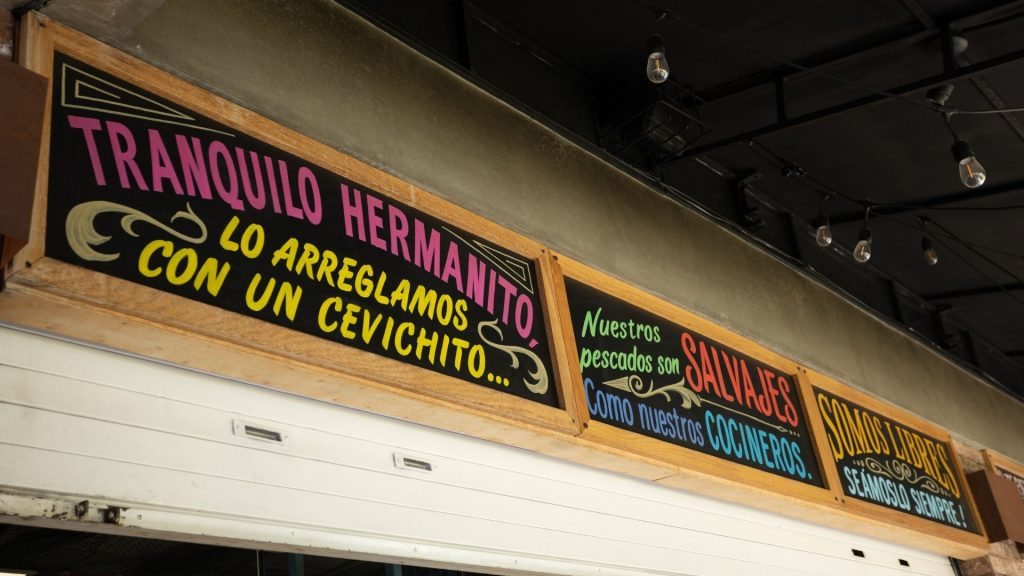 TRANQUILO HERMANITO,
LO ARREGLAMOS
CON UN CEVICHITO...
Nuestros
pescados son
SALVAJES...
Como nuestros
COCINEROS.
SOMOS LIBRES
SEÁMOSLO SIEMPRE!